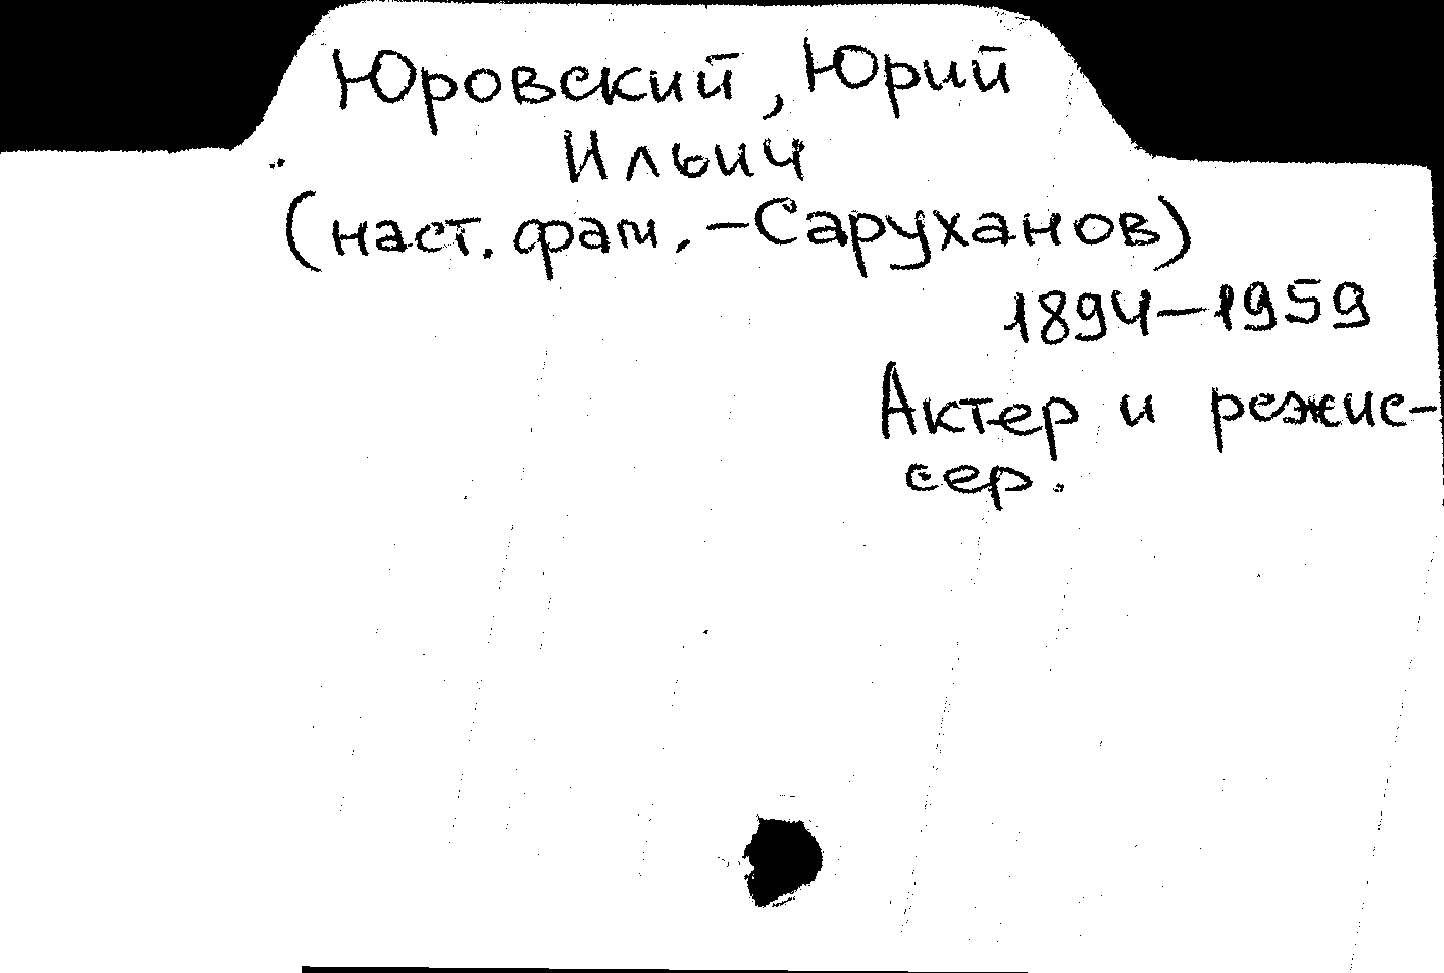 Юровский, Юрий
Ильич
(наст. фам. – Саруханов)
1894–1959
Актер и режис-
сер.